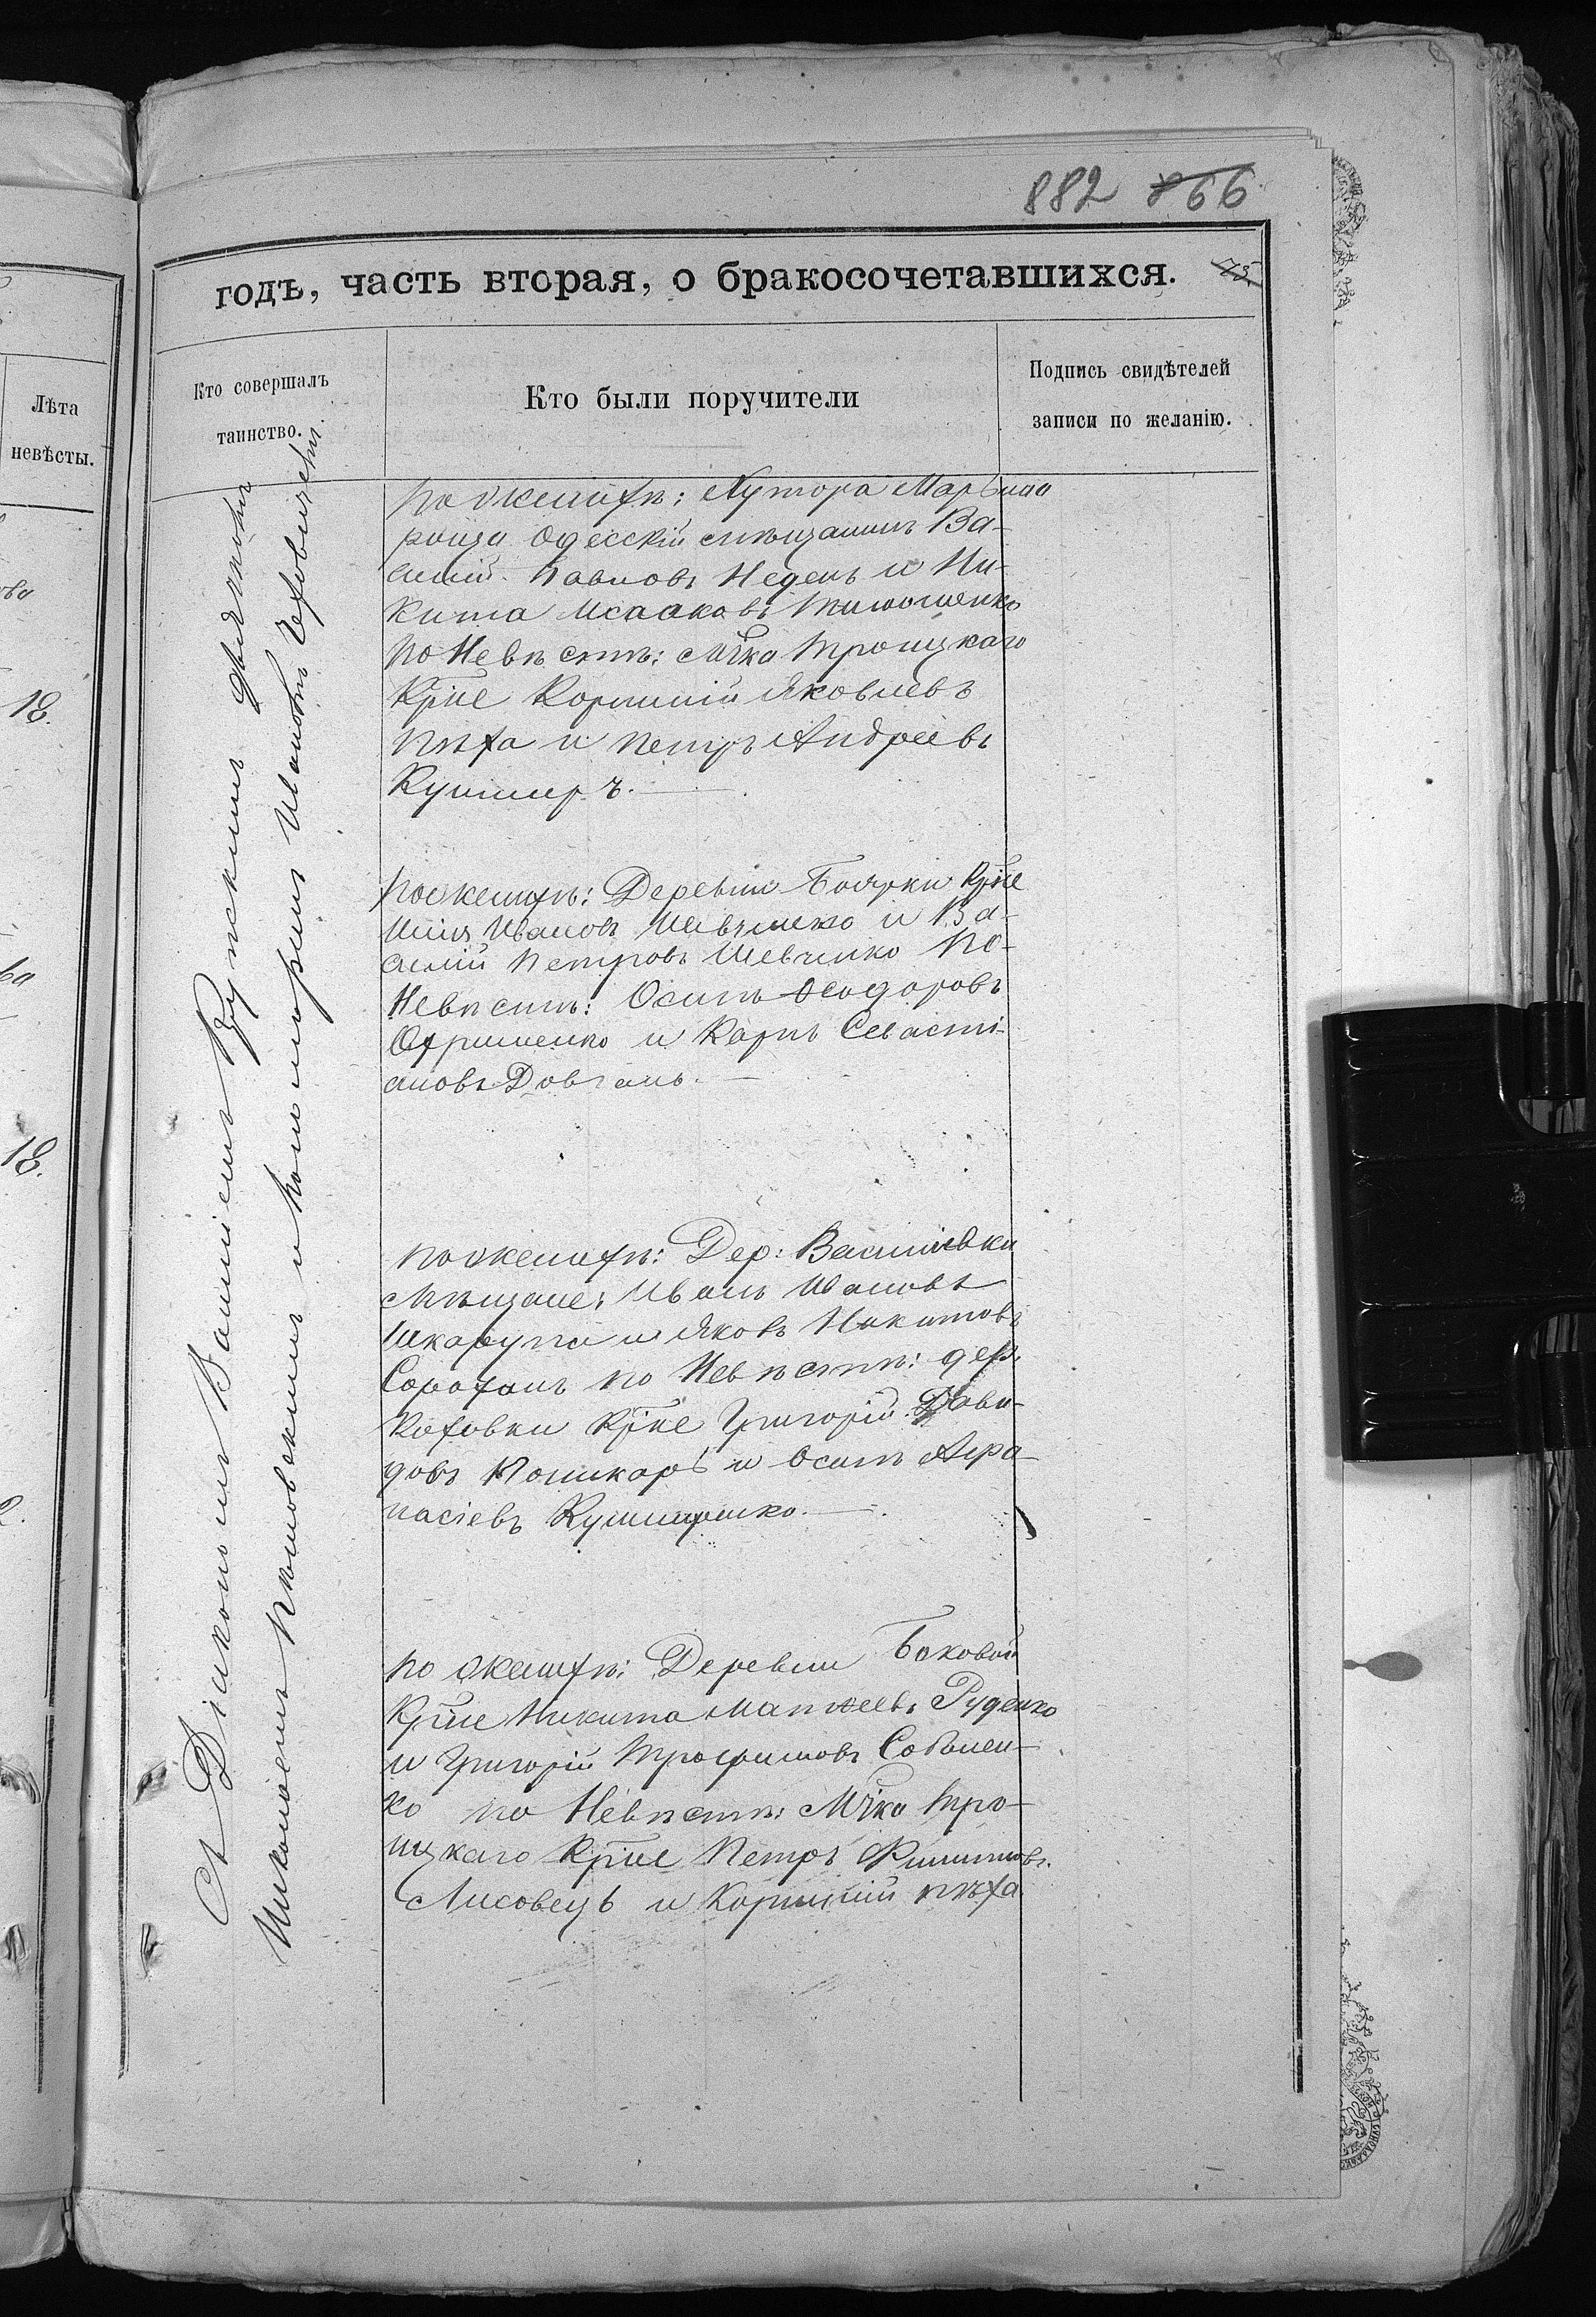 882 866
годъ, часть вторая, о бракосочетавшихся. 75
Лѣта
невѣсты.
Кто совершалъ
таинство.
Кто были поручители
Подпись свидѣтелей
записи по желанію.
18.
18.
2.
С Діакономъ Василіемъ дьячкомъ
Николаемъ и пономаремъ Иваномъ
по женихѣ: Хутора Марьина
роща Одесскій мѣщанинъ Ва-
силій Павловъ Недень и Ни-
кита Исааковъ Тимошенко
по Невѣстѣ: Мчка Троицкаго
Крне Корнилій Яковлевъ
Пѣха и Петръ Андреевъ
Кушниръ.
по женихѣ: Деревни Боярки Крне
Илія Ивановъ Шевченко и Ва-
силій Петровъ Шевченко по
Невѣстѣ: Осипъ Ѳеодоровъ
Охрименко и Карпъ Севасті-
ановъ Довгань.
по женихѣ: Дер: Васильевки
Мѣщане: Иванъ Ивановъ
Шкарупа и Яковъ Никитовъ
Сорочанъ по Невѣстѣ: дер.
Каховки Крне Григорій Дави-
довъ Поникаръ и Осипъ Афа-
насіевъ Кушниренко.
по женихѣ: Деревни Боковой
Крне Никита Матѳеевъ Руденко
и Григорій Трофимовъ Соболен-
ко по Невѣстѣ: Мчка Тро-
ицкаго Крне Петръ Филиповъ
Лисовецъ и Корнилій Пѣха